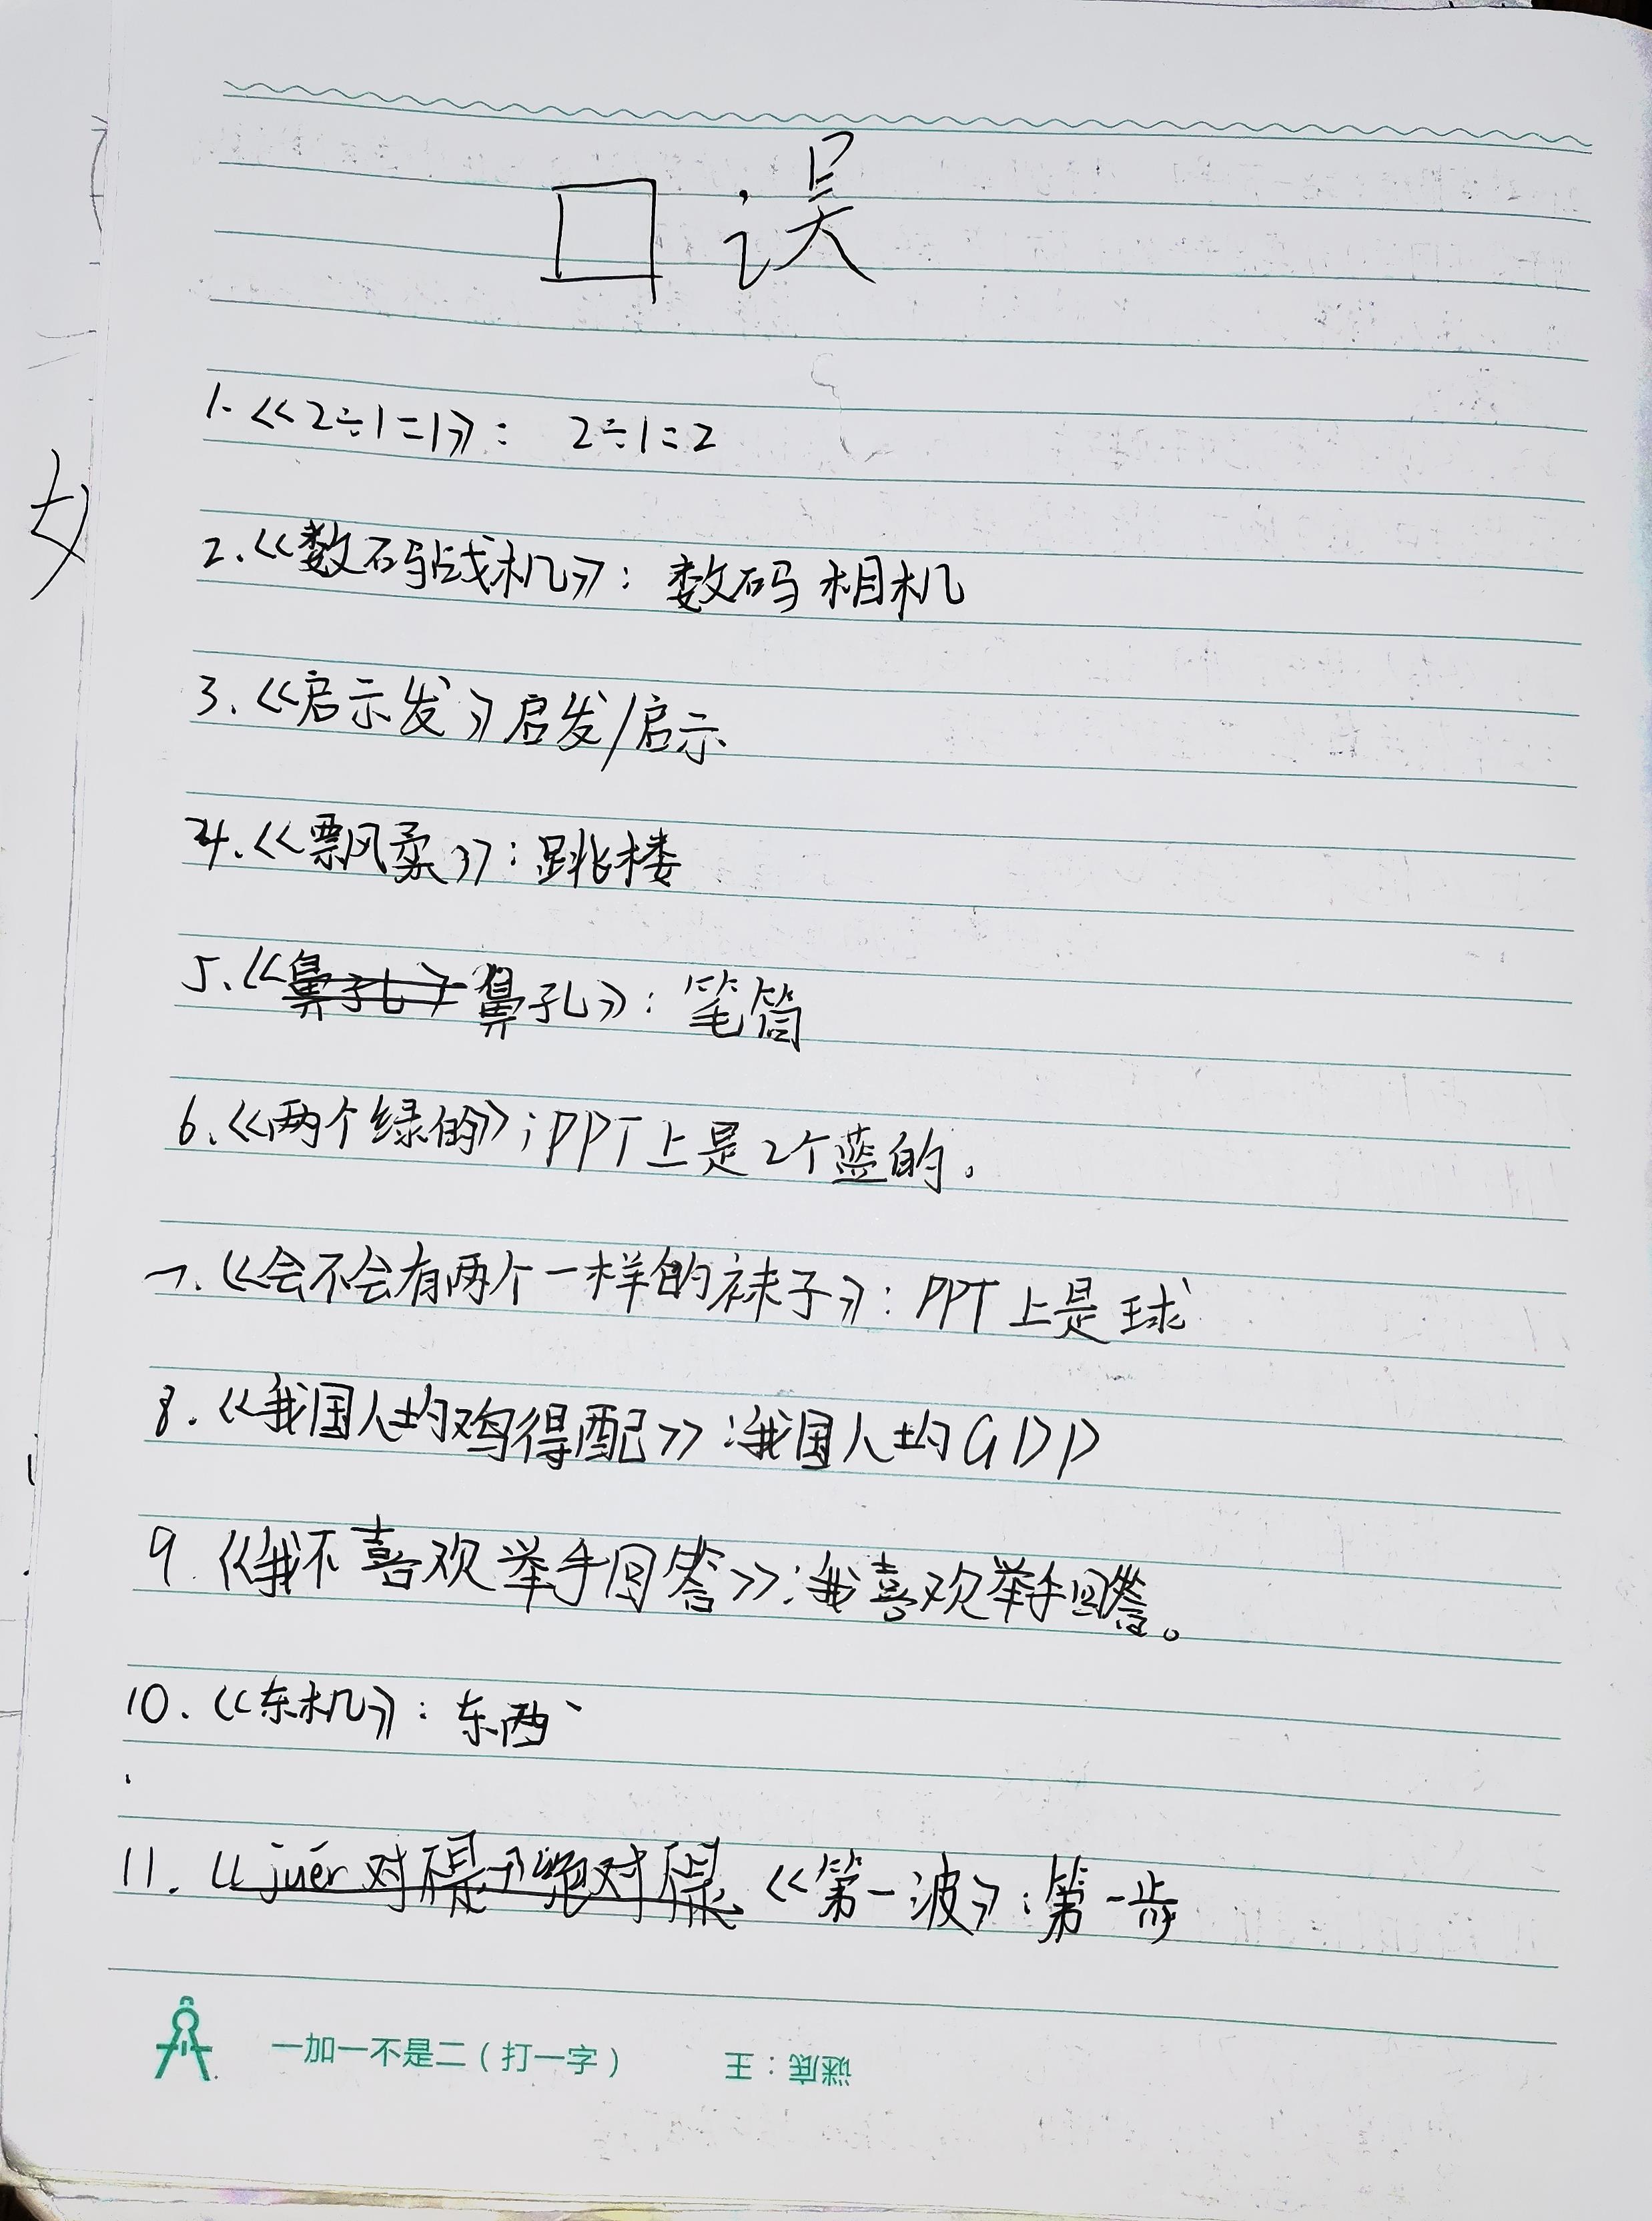 口误
1.《2÷1=1》: 2÷1=2
2.《数码战机》: 数码相机
3.《启示发》启发/启示
4.《飘风柔》: 跳楼
5.《鼻孔》鼻孔》: 笔筒
6.《两个绿的》; PPT上是2个蓝的。
7.《会不会有两个一样的袜子》: PPT上是球
8.《我国人均鸡得配》: 我国人均GDP
9.《我不喜欢举手回答》: 我喜欢举手回答。
10.《东机》: 东西
11.《juér对 绝对 《第一波》: 第一步
一加一不是二(打一字) 王:谜底